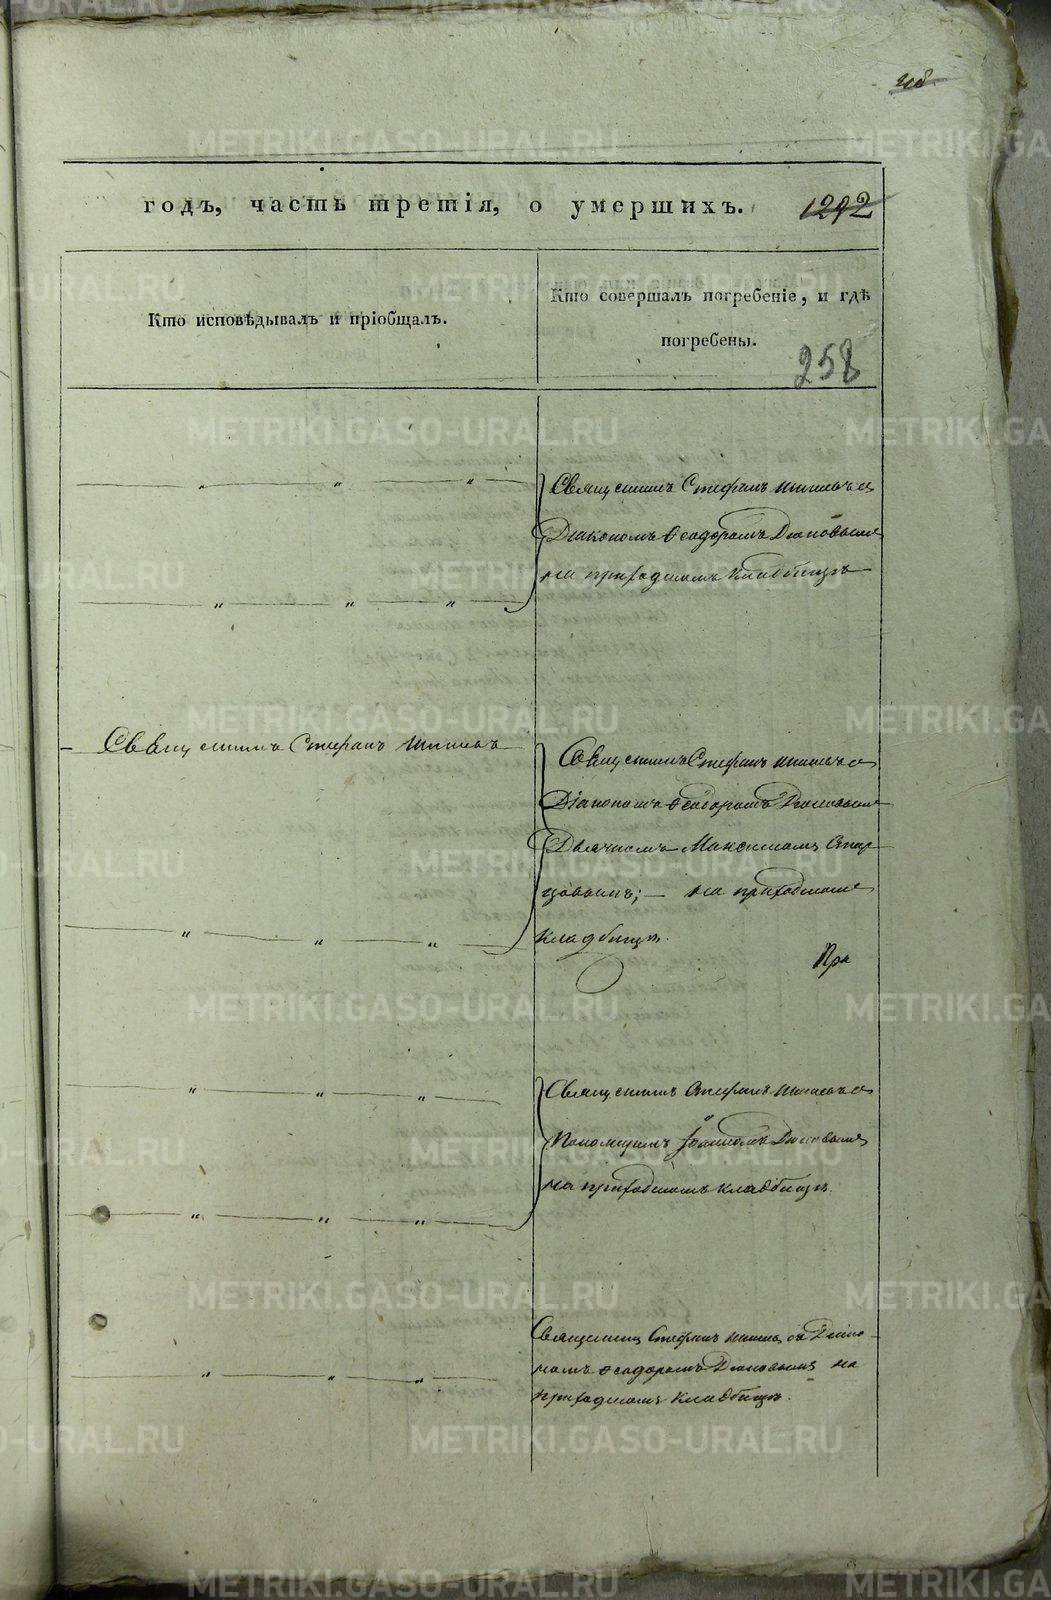 годъ, часть третія, о умершихъ. 1292
Кто исповѣдывалъ и пріобщалъ.
Кто совершалъ погребеніе, и гдѣ
погребены.
258
Священникъ Стефанъ съ
Діакономъ Ѳеодоромъ
на приходскомъ кладбищѣ
Священникъ Стефанъ
Священникъ Стефанъ съ
Діакономъ Ѳеодоромъ
Дьячкомъ Максимомъ Стар
цовымъ; — на приходскомъ
кладбищѣ.
При
Священникъ Стефанъ съ
Пономаремъ Іоанномъ
на приходскомъ кладбищѣ.
Священникъ Стефанъ съ Діако-
номъ Ѳеодоромъ на
приходскомъ кладбищѣ.
METRIKI.GASO-URAL.RU